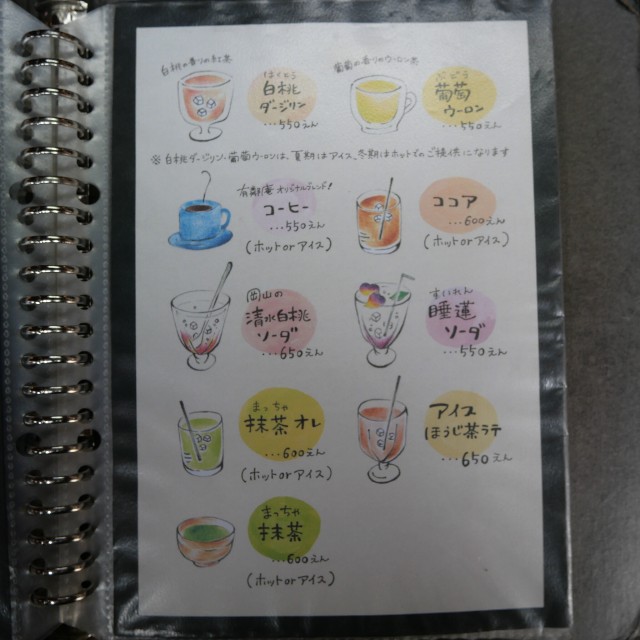 白桃の香りの紅茶
はくとう
白桃
ダージリン
...550えん
葡萄の香りのウーロン茶
ぶどう
葡萄
ウーロン
...550えん
※白桃ダージリン・葡萄ウーロンは、夏期はアイス、冬期はホットでのご提供になります
オリジナルブレンド!
コーヒー
...550えん
(ホットorアイス)
ココア
...600えん
(ホットorアイス)
岡山の
清水白桃
ソーダ
...650えん
すいれん
睡蓮
ソーダ
...550えん
まっちゃ
抹茶オレ
...600えん
(ホットorアイス)
アイス
ほうじ茶ラテ
...650えん
まっちゃ
抹茶
...600えん
(ホットorアイス)